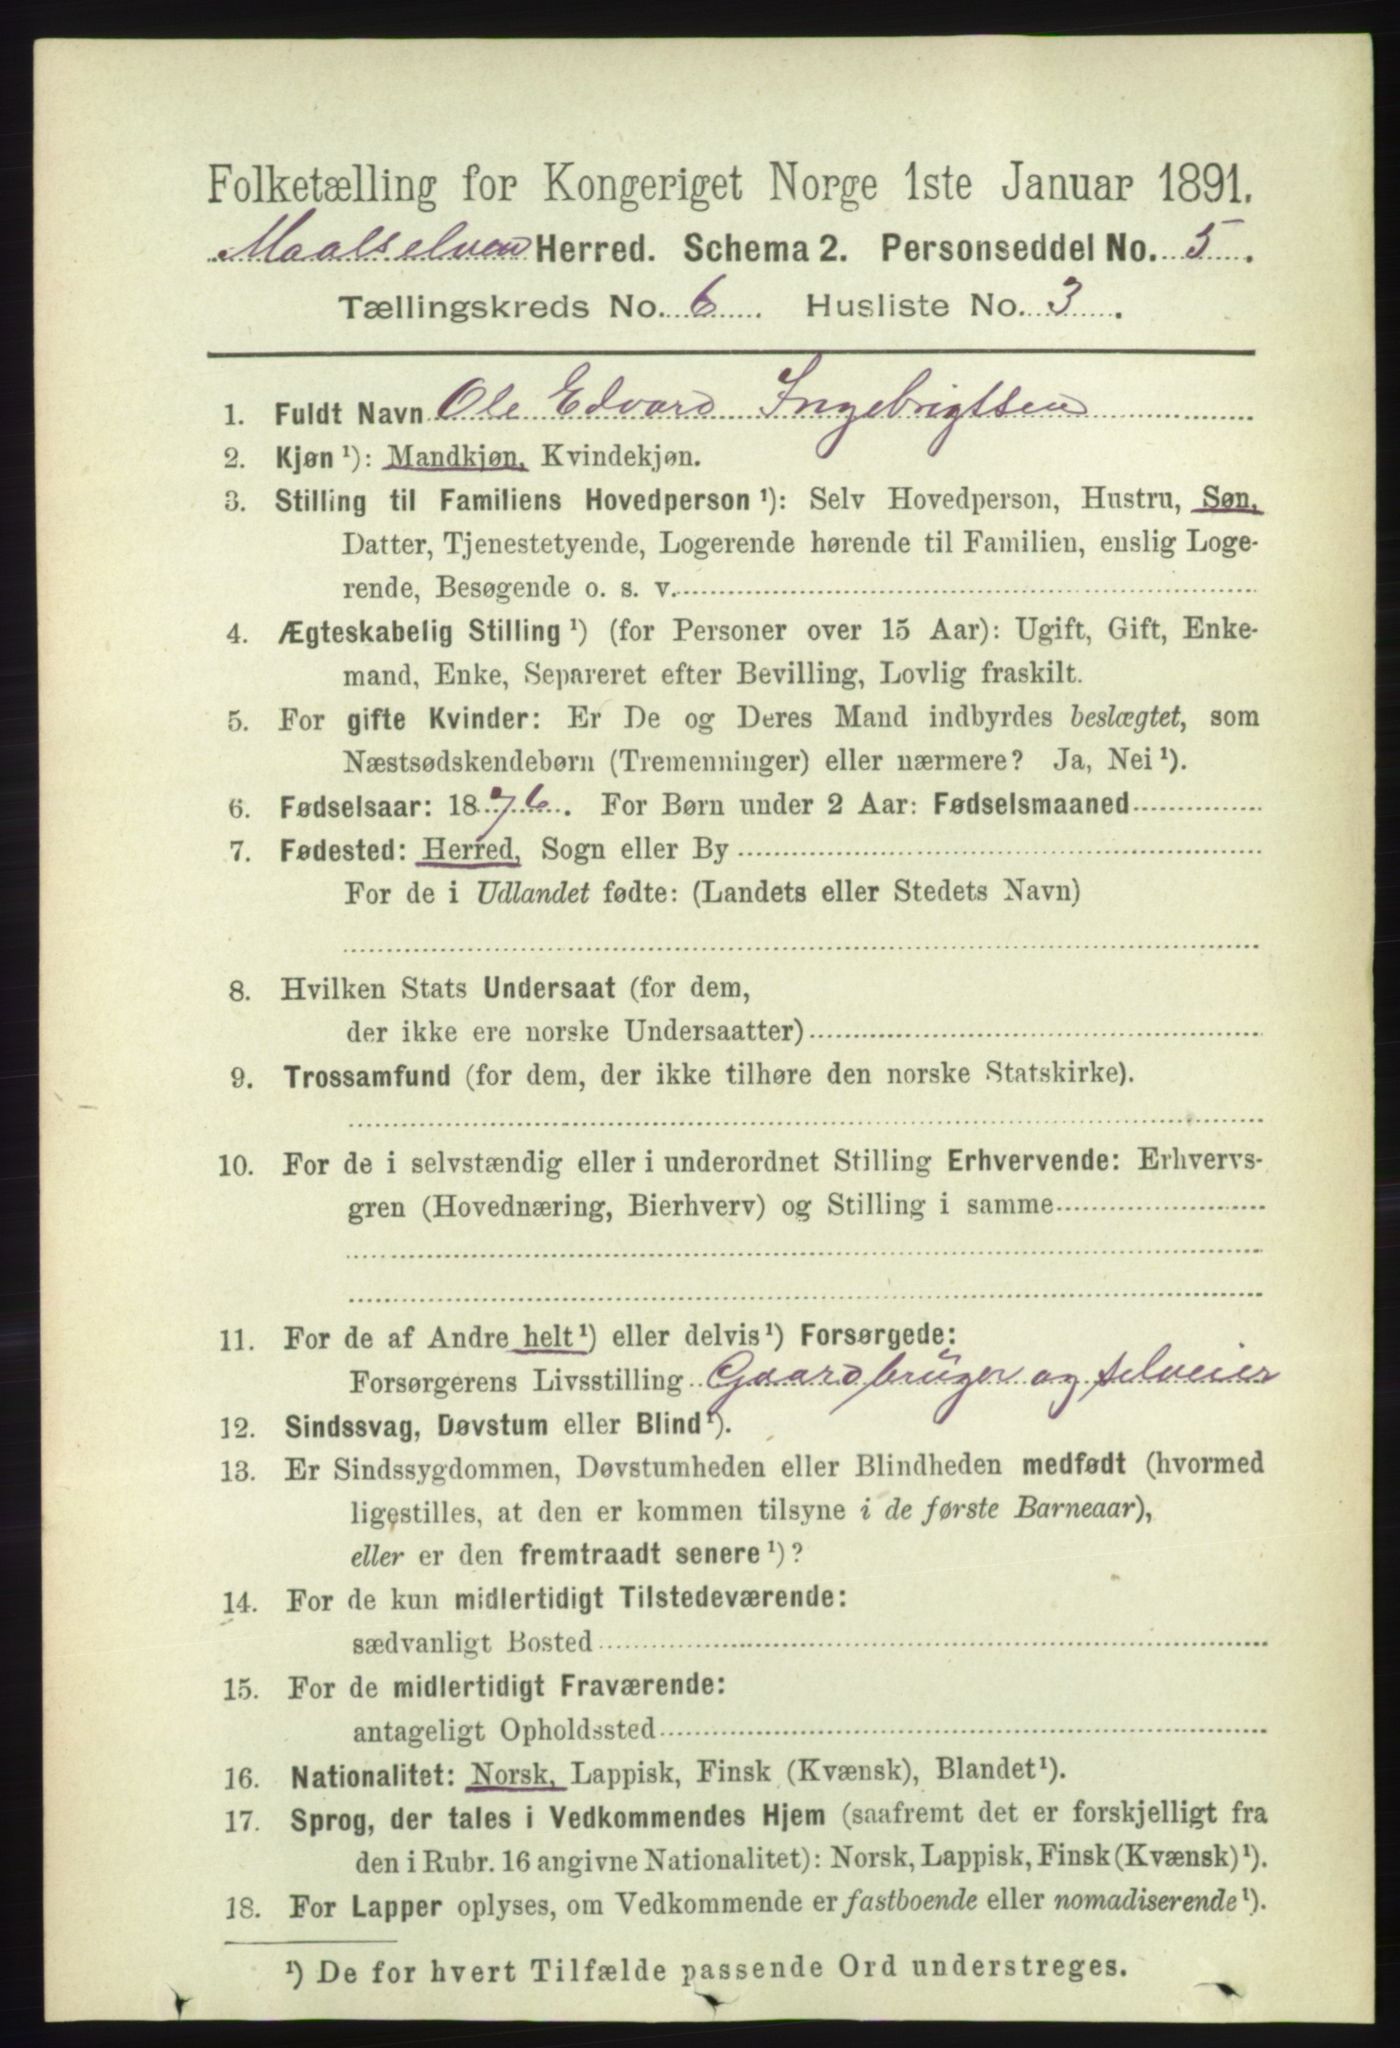 Folketælling for Kongeriget Norge 1ste Januar 1891.
Maalselven Herred. Schema 2. Personseddel No. 5.
Tællingskreds No. 6. Husliste No. 3.
1. Fuldt Navn Ole Edvard Ingebrigtsen
2. Kjøn ¹): Mandkjøn, Kvindekjøn.
3. Stilling til Familiens Hovedperson ¹): Selv Hovedperson, Hustru, Søn,
Datter, Tjenestetyende, Logerende hørende til Familien, enslig Loge-
rende, Besøgende o. s. v.
4. Ægteskabelig Stilling ¹) (for Personer over 15 Aar): Ugift, Gift, Enke-
mand, Enke, Separeret efter Bevilling, Lovlig fraskilt.
5. For gifte Kvinder: Er De og Deres Mand indbyrdes beslægtet, som
Næstsødskendebørn (Tremenninger) eller nærmere? Ja, Nei ¹).
6. Fødselsaar: 1876. For Børn under 2 Aar: Fødselsmaaned
7. Fødested: Herred, Sogn eller By
For de i Udlandet fødte: (Landets eller Stedets Navn)
8. Hvilken Stats Undersaat (for dem,
der ikke ere norske Undersaatter)
9. Trossamfund (for dem, der ikke tilhøre den norske Statskirke).
10. For de i selvstændig eller i underordnet Stilling Erhvervende: Erhvervs-
gren (Hovednæring, Bierhverv) og Stilling i samme
11. For de af Andre helt ¹) eller delvis ¹) Forsørgede:
Forsørgerens Livsstilling Gaardbrüger og selveier
12. Sindssvag, Døvstum eller Blind ¹).
13. Er Sindssygdommen, Døvstumheden eller Blindheden medfødt (hvormed
ligestilles, at den er kommen tilsyne i de første Barneaar),
eller er den fremtraadt senere ¹)?
14. For de kun midlertidigt Tilstedeværende:
sædvanligt Bosted
15. For de midlertidigt Fraværende:
antageligt Opholdssted
16. Nationalitet: Norsk, Lappisk, Finsk (Kvænsk), Blandet ¹).
17. Sprog, der tales i Vedkommendes Hjem (saafremt det er forskjelligt fra
den i Rubr. 16 angivne Nationalitet): Norsk, Lappisk, Finsk (Kvænsk) ¹).
18. For Lapper oplyses, om Vedkommende er fastboende eller nomadiserende ¹).
¹) De for hvert Tilfælde passende Ord understreges.